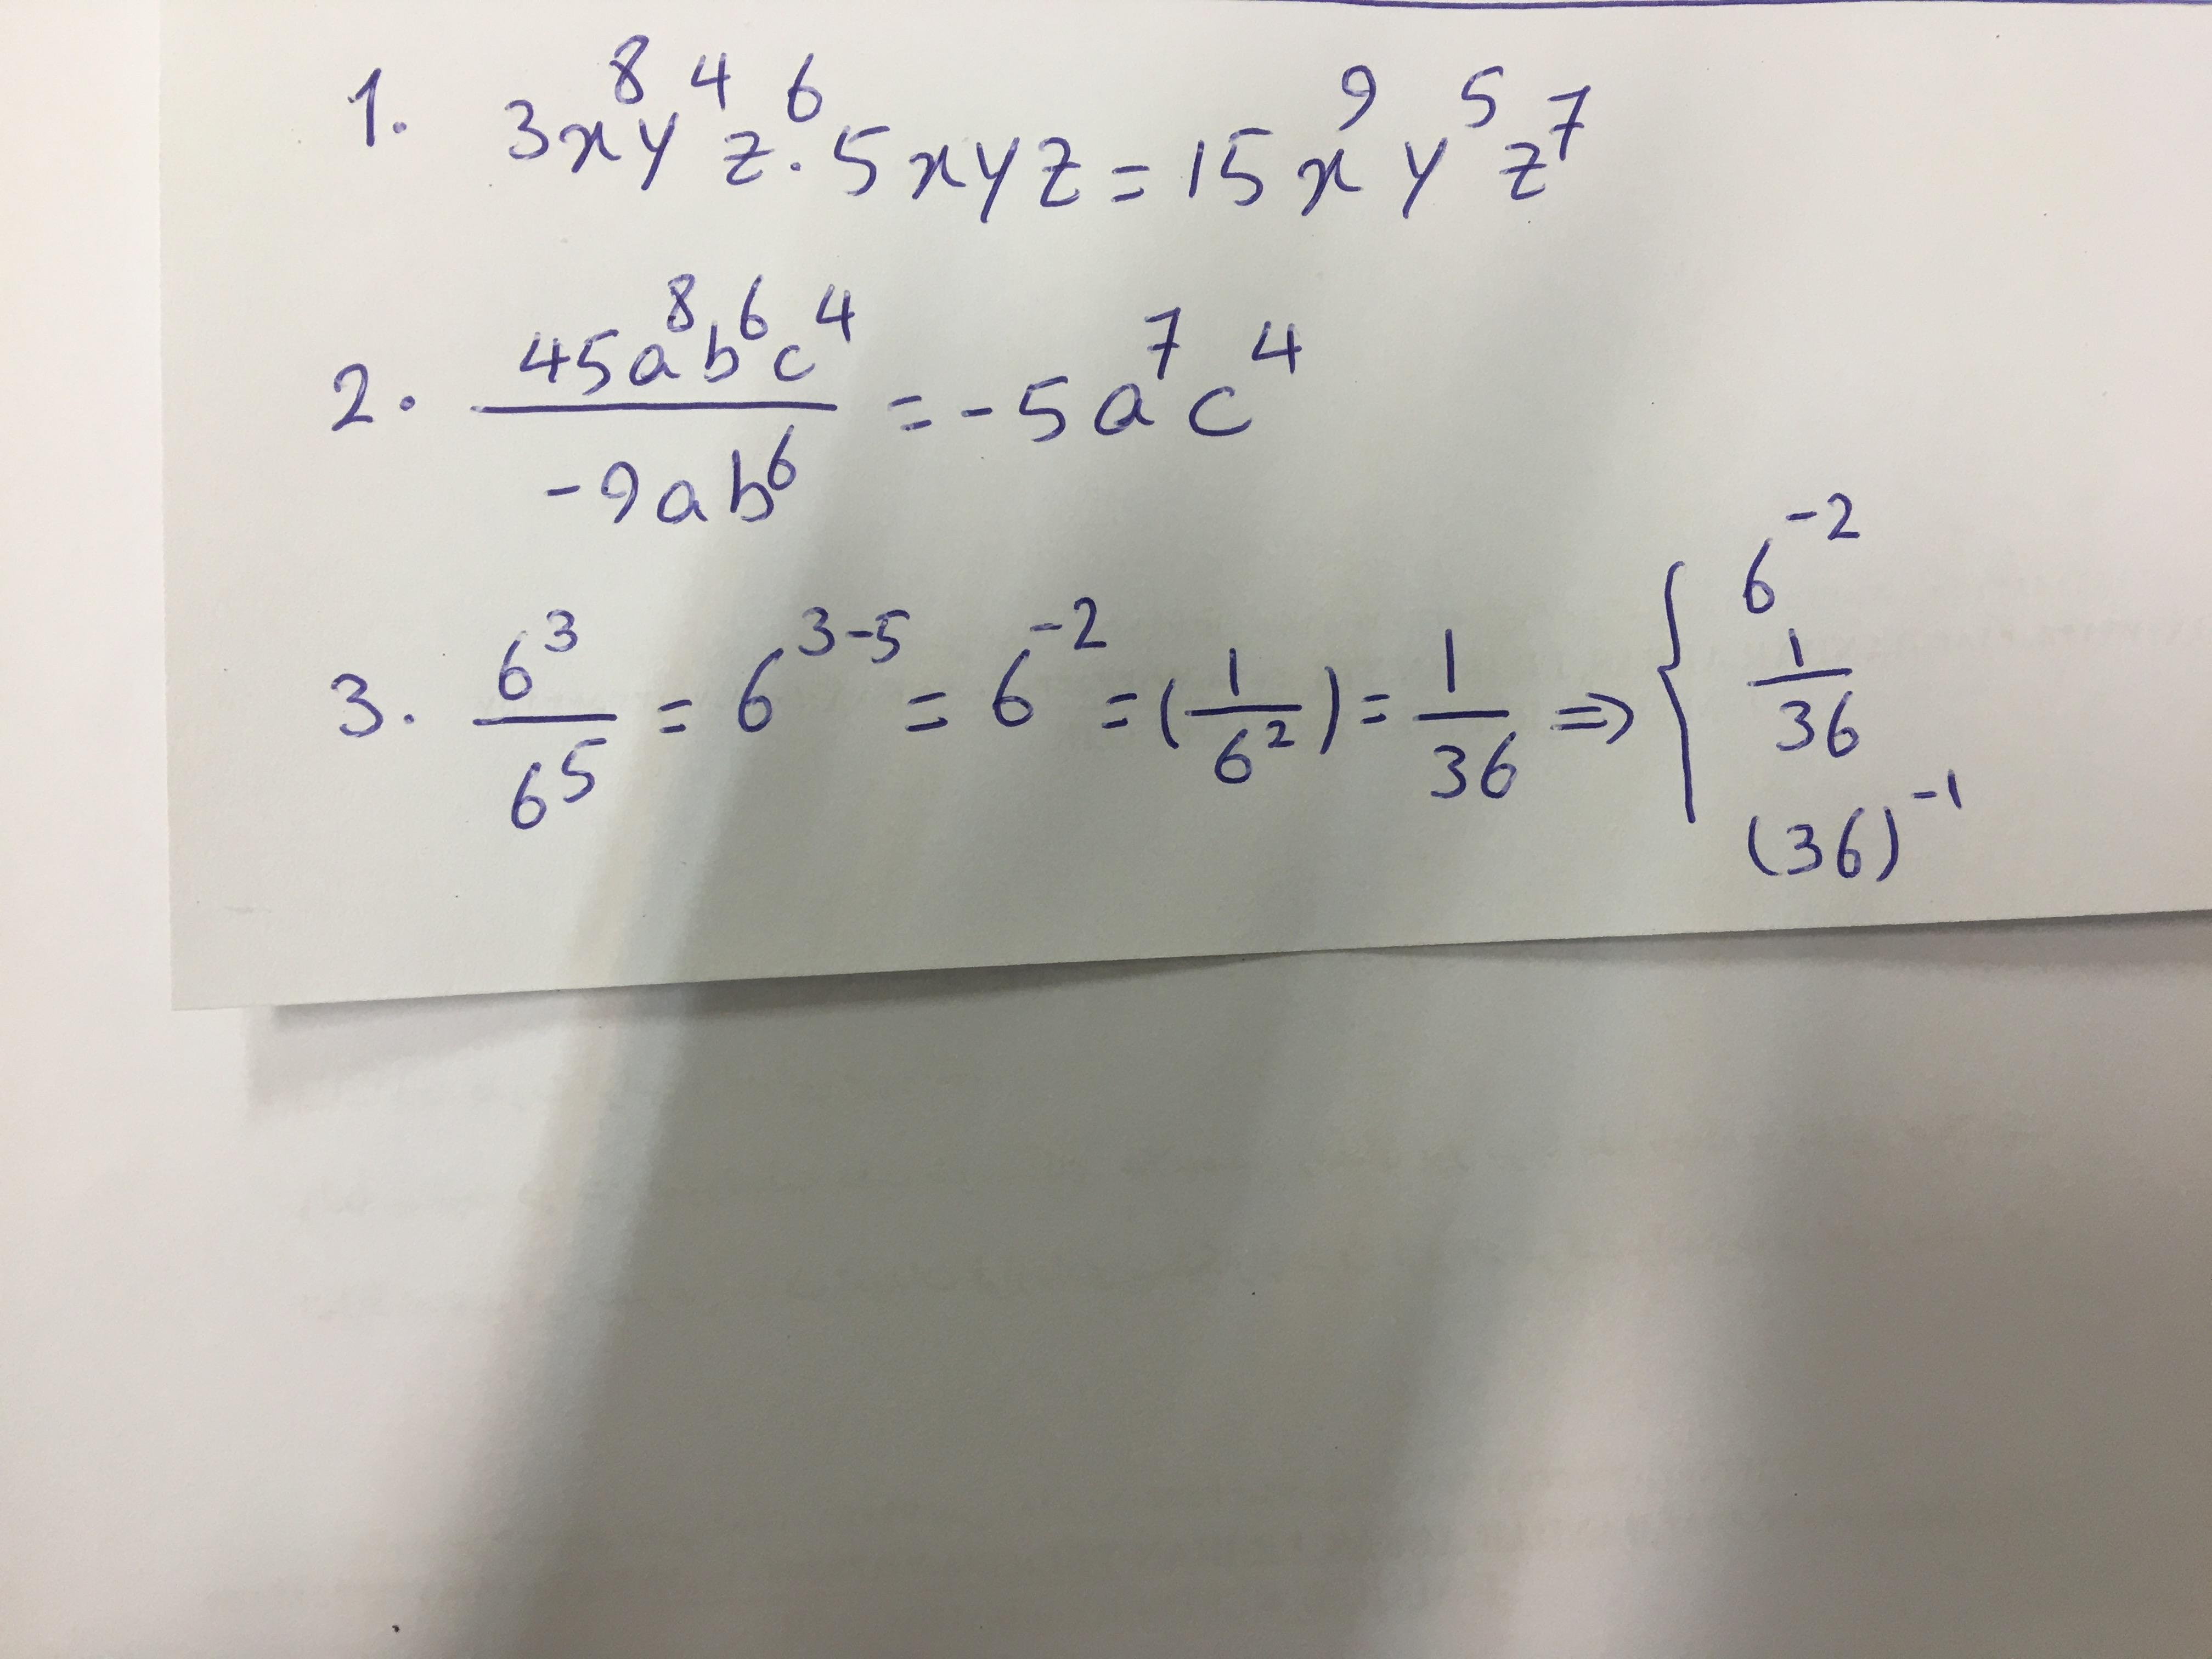 1. 3x⁸y⁴z⁶·5xyz = 15x⁹y⁵z⁷
2. 45a⁸b⁶c⁴ / -9ab⁶ = -5a⁷c⁴
3. 6³/6⁵ = 6³⁻⁵ = 6⁻² = (1/6²) = 1/36 ⇒ { 6⁻²
1/36
(36)⁻¹